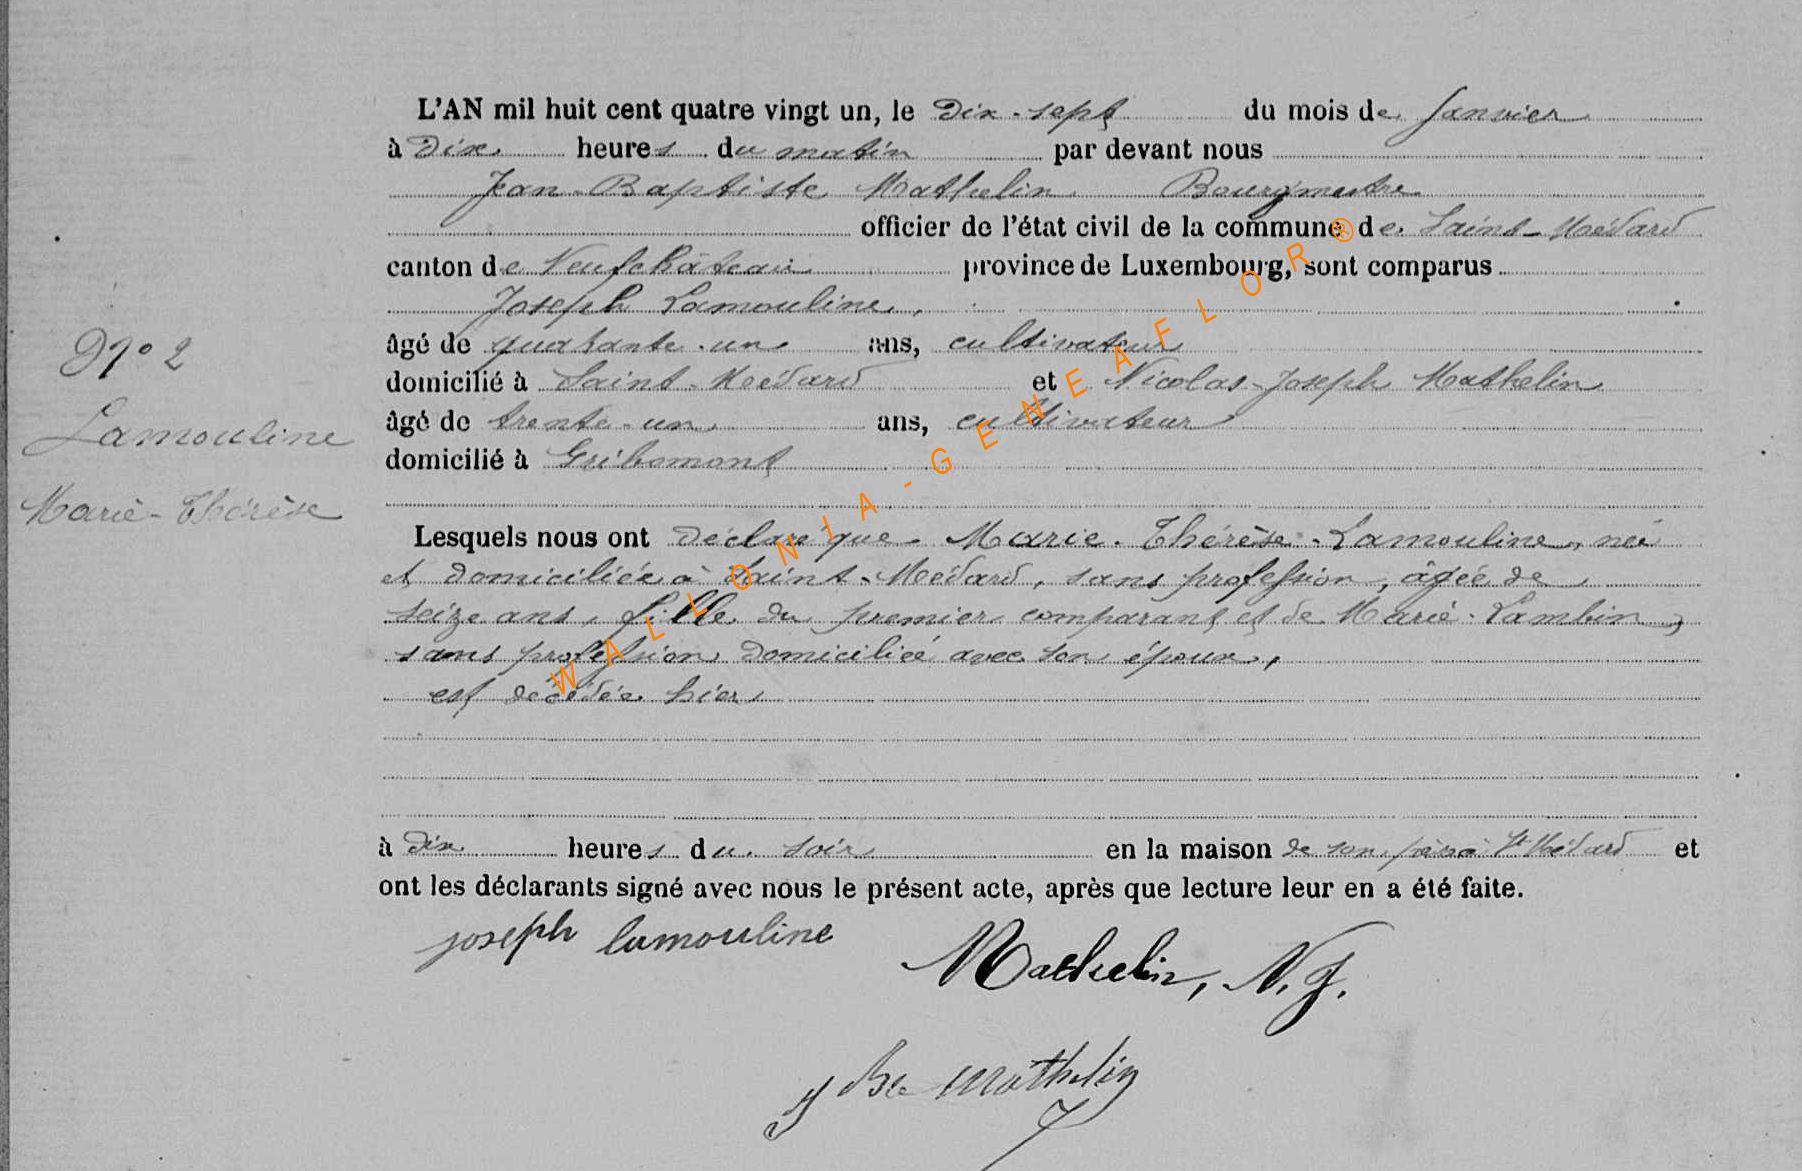 L'AN mil huit cent quatre vingt un, le Dix-sept du mois de Janvier
à Dix heures du matin par devant nous
Jean-Baptiste Mathelin Bourgmestre
officier de l'état civil de la commune de Saint-Médard
canton de Neufchâteau province de Luxembourg, sont comparus
Joseph Lamouline,
âgé de quarante-un ans, cultivateur
domicilié à Saint-Médard et Nicolas-Joseph Mathelin
âgé de trente-un ans, cultivateur
domicilié à Gribomont
N° 2
Lamouline
Marie-Thérèse
Lesquels nous ont déclaré que Marie-Thérèse-Lamouline, née
et domiciliée à Saint-Médard, sans profession, âgée de
seize ans, fille du premier comparant et de Marie-Lambin,
sans profession domiciliée avec son époux,
est décédée hier
à dix heures du soir en la maison de son père à St Médard et
ont les déclarants signé avec nous le présent acte, après que lecture leur en a été faite.
joseph lamouline
Mathelin, N. J.
J Bte Mathelin
WALLONIA-GENEAFLOR®